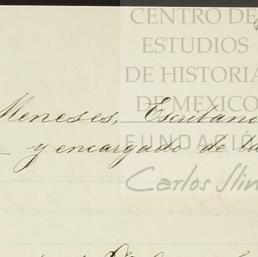 CENTRO DE
ESTUDIOS
DE HISTORIA
DE MEXICO
Meneses, Escribano
FUNDACIÓN
y encargado de la
Carlos Slim